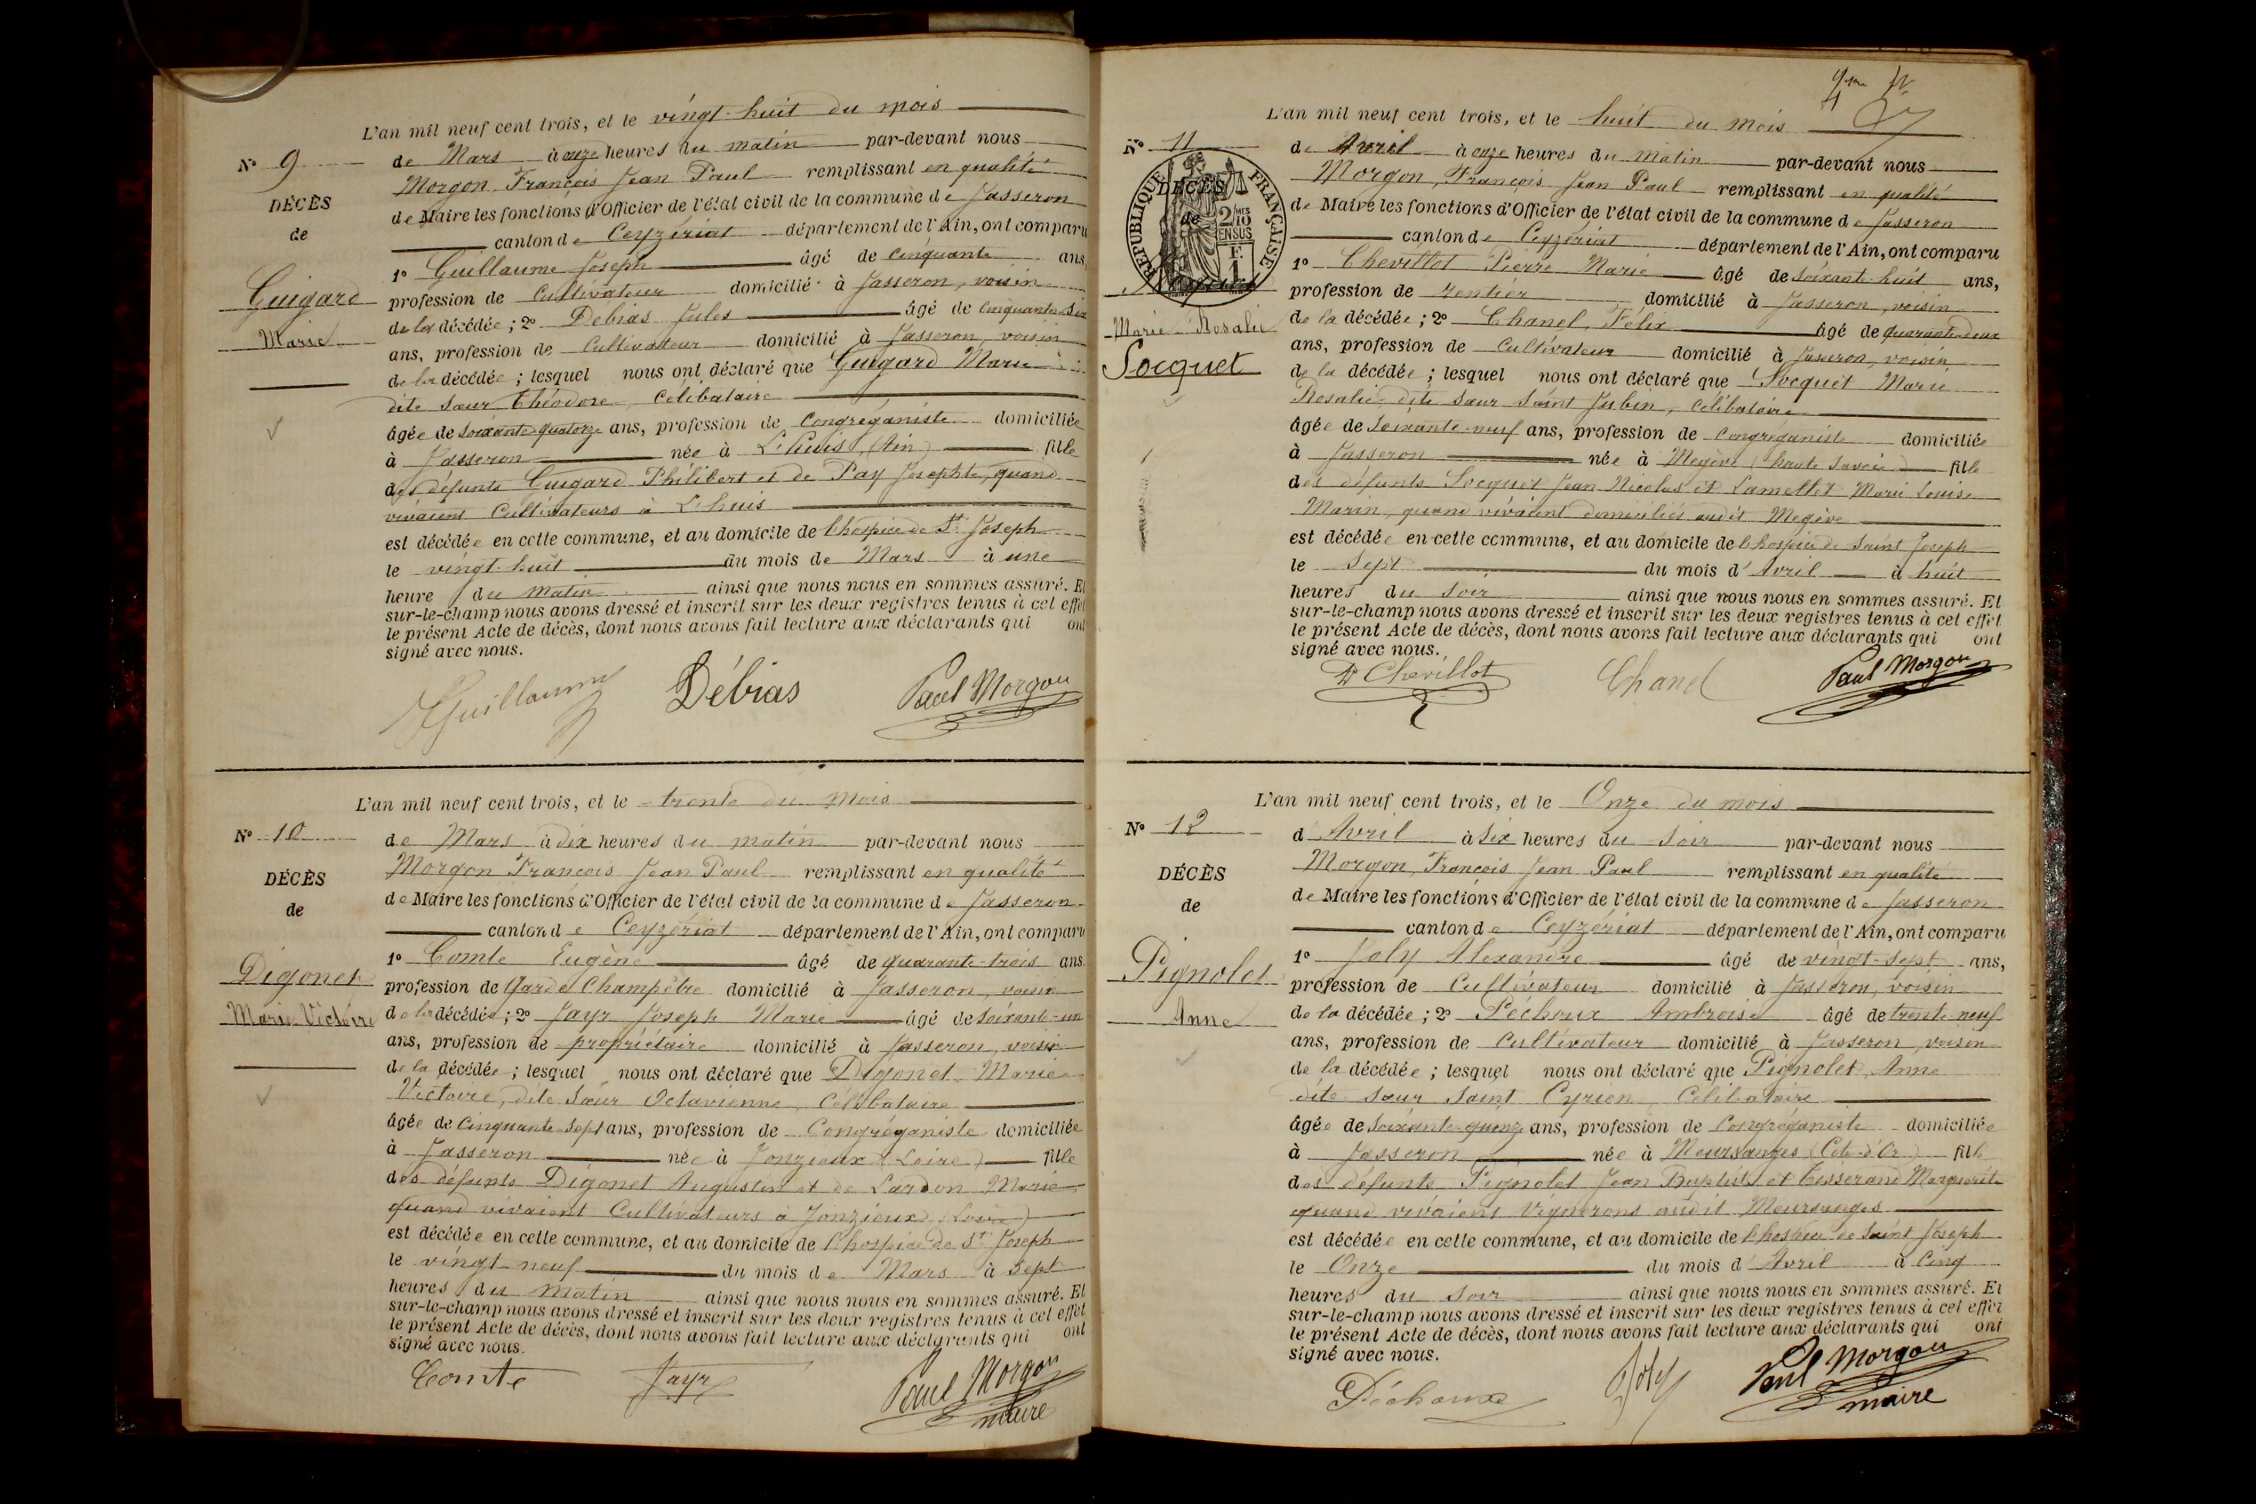 L'an mil neuf cent trois, et le vingt-huit du mois
N° 9
de Mars à onze heures du matin par-devant nous
Morgon François Jean Paul remplissant en qualité
DÉCÈS
de Maire les fonctions d'Officier de l'état civil de la commune de Jasseron
de
canton de Ceyzériat département de l'Ain, ont comparu
1° Guillaume Joseph âgé de cinquante ans,
Guigard
profession de Cultivateur domicilié à Jasseron, voisin
de la décédée; 2° Debias Jules âgé de cinquante-six
Marie
ans, profession de Cultivateur domicilié à Jasseron, voisin
de la décédée; lesquel nous ont déclaré que Guigard Marie
dite Sœur Théodore, Célibataire
âgée de soixante-quatorze ans, profession de Congréganiste domiciliée
à Jasseron née à L'huis (Ain) fille
des défunts Guigard Philibert et de Pay Josephte, quand
vivaient Cultivateurs à L'huis
est décédée en cette commune, et au domicile de l'hospice de St Joseph
le vingt-huit du mois de Mars à une
heure du matin ainsi que nous nous en sommes assuré. Et
sur-le-champ nous avons dressé et inscrit sur les deux registres tenus à cet effet
le présent Acte de décès, dont nous avons fait lecture aux déclarants qui ont
signé avec nous.
Guillaume Débias Paul Morgon
L'an mil neuf cent trois, et le trente du mois
N° 10
de Mars à dix heures du matin par-devant nous
Morgon François Jean Paul remplissant en qualité
DÉCÈS
de Maire les fonctions d'Officier de l'état civil de la commune de Jasseron
de
canton de Ceyzériat département de l'Ain, ont comparu
1° Comte Eugène âgé de quarante-trois ans
Digonet
profession de Garde Champêtre domicilié à Jasseron, voisin
Marie Victoire
de la décédée; 2° Jayr Joseph Marie âgé de soixante-un
ans, profession de propriétaire domicilié à Jasseron, voisin
de la décédée; lesquel nous ont déclaré que Digonet Marie
Victoire, dite Sœur Octavienne, Célibataire
âgée de cinquante-sept ans, profession de Congréganiste domiciliée
à Jasseron née à Jonzieux (Loire) fille
des défunts Digonet Augustin et de Lardon Marie
quand vivaient Cultivateurs à Jonzieux (Loire)
est décédée en cette commune, et au domicile de l'hospice de St Joseph
le vingt-neuf du mois de Mars à sept
heures du matin ainsi que nous nous en sommes assuré. Et
sur-le-champ nous avons dressé et inscrit sur les deux registres tenus à cet effet
le présent Acte de décès, dont nous avons fait lecture aux déclarants qui ont
signé avec nous.
Comte Jayr Paul Morgon
maire
L'an mil neuf cent trois, et le huit du mois
N° 11
de Avril à onze heures du matin par-devant nous
Morgon, François Jean Paul remplissant en qualité
DÉCÈS
de
RÉPUBLIQUE FRANÇAISE
2/10 EN SUS
F. 1
de Maire les fonctions d'Officier de l'état civil de la commune de Jasseron
canton de Ceyzériat département de l'Ain, ont comparu
1° Chevillot Pierre Marie âgé de soixant-huit ans,
profession de rentier domicilié à Jasseron, voisin
Marie Rosalie
de la décédée; 2° Chanel, Félix âgé de quarante-deux
Socquet
ans, profession de Cultivateur domicilié à Jasseron, voisin
de la décédée; lesquel nous ont déclaré que Socquet Marie
Rosalie dite sœur Saint Jubin, célibataire
âgée de soixante-neuf ans, profession de congréganiste domiciliée
à Jasseron née à Megève (haute Savoie) fille
des défunts Socquet Jean Nicolas et Lamettet Marie Louise
Marin, quand vivaient domiciliés audit Megève
est décédée en cette commune, et au domicile de l'hospice de Saint Joseph
le sept du mois d'Avril à huit
heures du soir ainsi que nous nous en sommes assuré. Et
sur-le-champ nous avons dressé et inscrit sur les deux registres tenus à cet effet
le présent Acte de décès, dont nous avons fait lecture aux déclarants qui ont
signé avec nous.
Chevillot Chanel Paul Morgon
L'an mil neuf cent trois, et le Onze du mois
N° 12
d'Avril à six heures du soir par-devant nous
Morgon, François Jean Paul remplissant en qualité
DÉCÈS
de Maire les fonctions d'Officier de l'état civil de la commune de Jasseron
de
canton de Ceyzériat département de l'Ain, ont comparu
1° Joly Alexandre âgé de vingt-sept ans,
Pignolet
profession de Cultivateur domicilié à Jasseron, voisin
Anne
de la décédée; 2° Péchoux Ambroise âgé de trente-neuf
ans, profession de Cultivateur domicilié à Jasseron, voisin
de la décédée; lesquel nous ont déclaré que Pignolet, Anne
dite sœur Saint Cyrien, Célibataire
âgée de soixante-quinze ans, profession de Congréganiste domiciliée
à Jasseron née à Meursanges (Côte-d'Or) fille
des défunts Pignolet Jean Baptiste et Tisserand Marguerite
quand vivaient Vignerons audit Meursanges
est décédée en cette commune, et au domicile de l'hospice de Saint Joseph
le Onze du mois d'Avril à cinq
heures du soir ainsi que nous nous en sommes assuré. Et
sur-le-champ nous avons dressé et inscrit sur les deux registres tenus à cet effet
le présent Acte de décès, dont nous avons fait lecture aux déclarants qui ont
signé avec nous.
Péchoux Joly Paul Morgon
maire